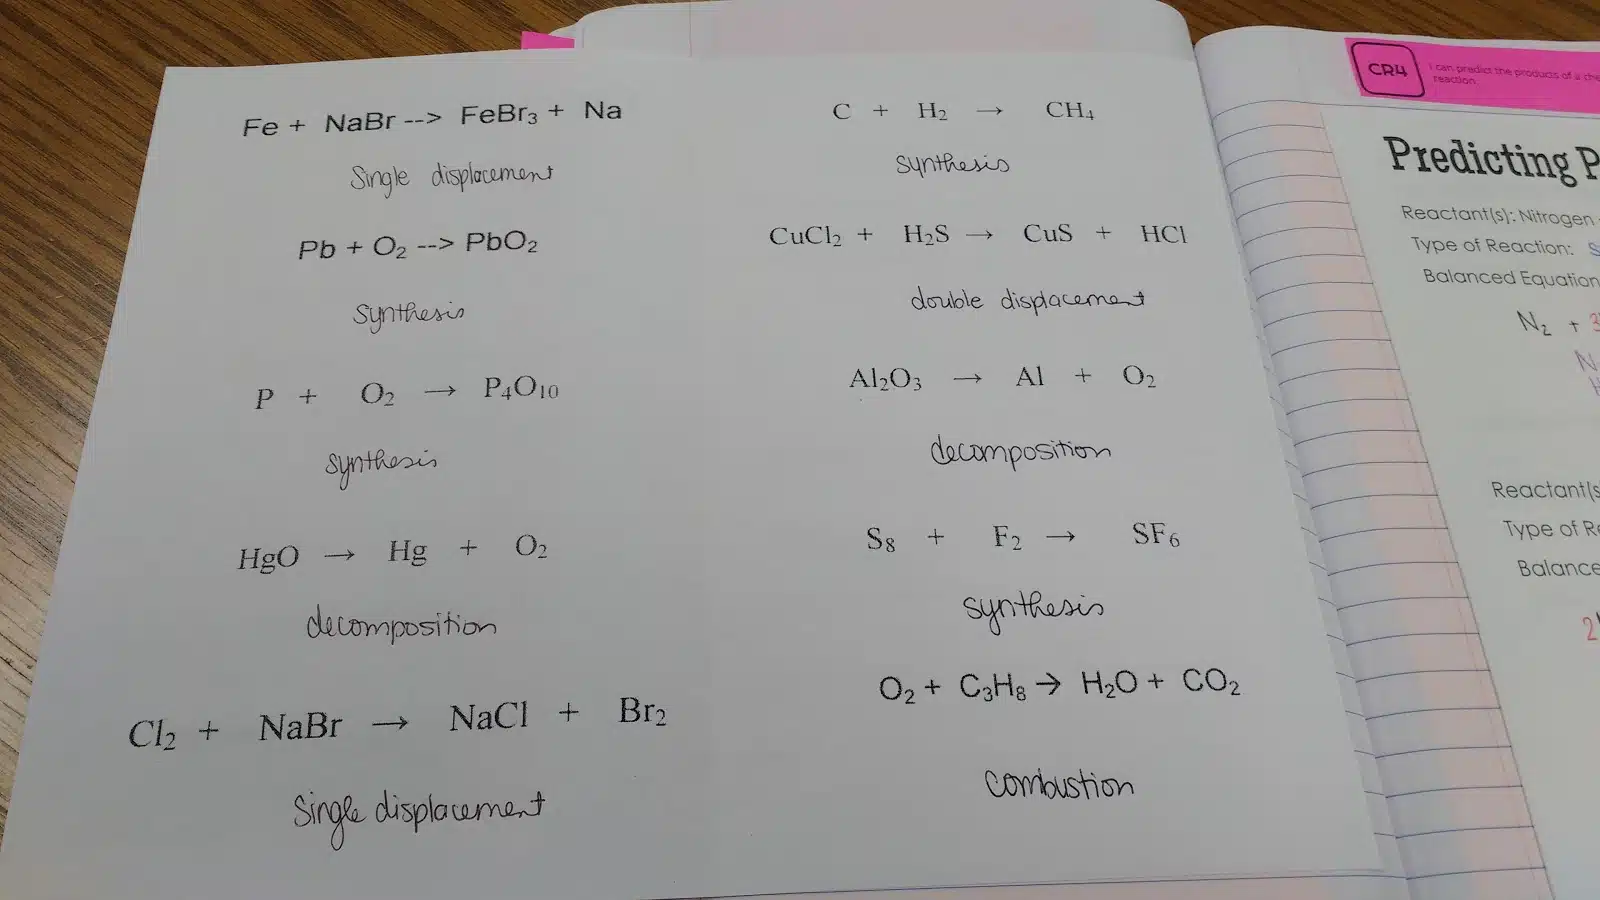 Fe + NaBr --> FeBr₃ + Na
Single displacement
Pb + O₂ --> PbO₂
synthesis
P + O₂ → P₄O₁₀
synthesis
HgO → Hg + O₂
decomposition
Cl₂ + NaBr → NaCl + Br₂
Single displacement
C + H₂ → CH₄
synthesis
CuCl₂ + H₂S → CuS + HCl
double displacement
Al₂O₃ → Al + O₂
decomposition
S₈ + F₂ → SF₆
synthesis
O₂ + C₃H₈ → H₂O + CO₂
Combustion
CR4
I can predict the products of a
reaction.
Predicting P
Reactant(s): Nitrogen
Type of Reaction: S
Balanced Equation
N₂ + 3
N
H
Reactant(s
Type of Re
Balance
2